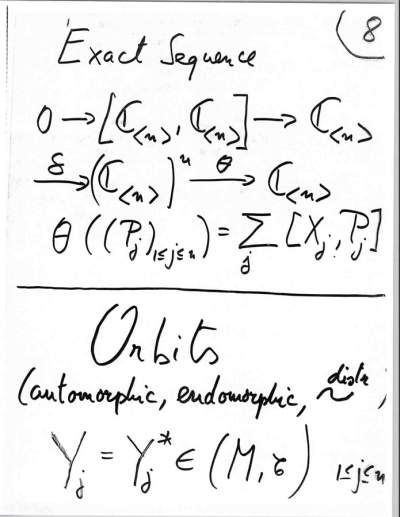 8
Exact Sequence
0 → [ℂ<n>, ℂ<n>] → ℂ<n>
δ→ (ℂ<n>)ⁿ θ→ ℂ<n>
θ((P_j)_{1≤j≤n}) = Σ_j [X_j, P_j]
Orbits
(automorphic, endomorphic, ~distr,
Y_j = Y_j* ∈ (M, τ) 1≤j≤n